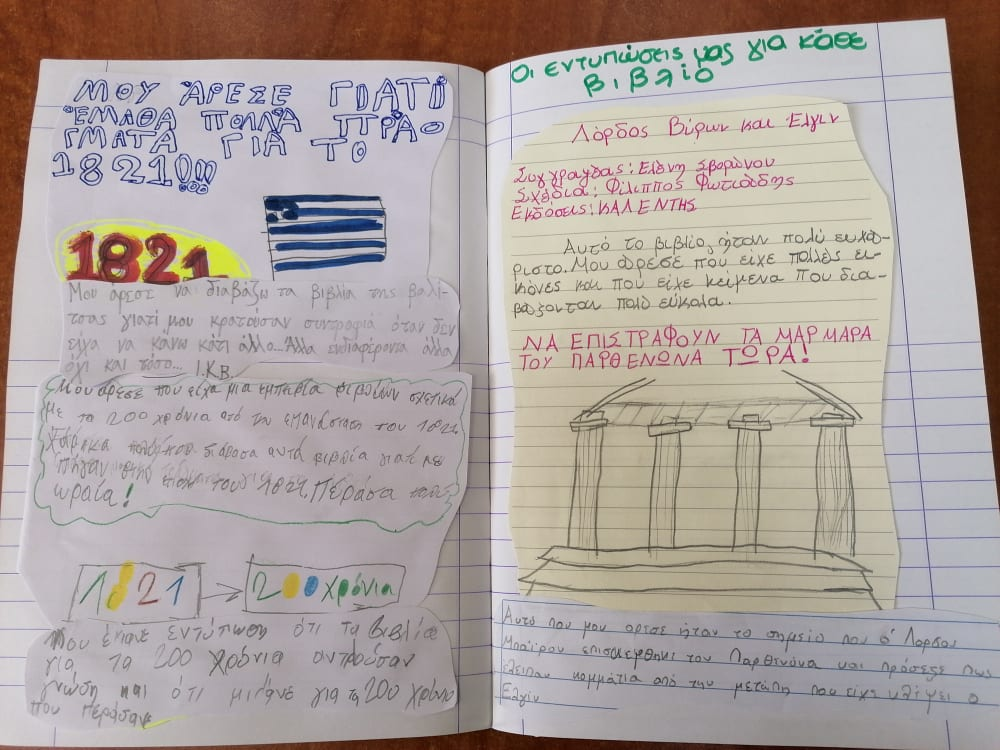 ΜΟΥ ΆΡΕΣΕ ΓΙΑΤΙ
ΈΜΑΘΑ ΠΟΛΛΆ ΠΡΑ-
ΓΜΑΤΑ ΓΙΑ ΤΟ
1821!!!
1821
Μου άρεσε να διαβάζω τα βιβλία της βαλί-
τσας γιατί μου κρατούσαν συντροφιά όταν δεν
είχα να κάνω κάτι άλλο... Άλλα ενδιαφέροντα άλλα
όχι και τόσο... Ι.Κ.Β.
Μου άρεσε που είχα μια εμπειρία βιβλίων σχετικά
με τα 200 χρόνια από την επανάσταση του 1821.
Χάρηκα που διάβασα αυτά βιβλία γιατί με
πήγαν στην εποχή του 1821. Πέρασα πολύ
ωραία!
1821 → 200 χρόνια
Μου έκανε εντύπωση ότι τα βιβλία
για τα 200 χρόνια
γνώση και ότι μιλάνε για τα 200 χρόνια
που πέρασαν
Οι εντυπώσεις μας για κάθε
βιβλίο
Λόρδος Βύρων και Έλγιν
Συγγραφέας: Ελένη Σβορώνου
Σχέδια: Φίλιππος Φωτιάδης
Εκδόσεις: ΚΑΛΕΝΤΗΣ
Αυτό το βιβλίο, ήταν πολύ ευχά-
ριστο. Μου άρεσε που είχε πολλές ει-
κόνες και που είχε κείμενα που δια-
βάζονταν πολύ εύκολα.
ΝΑ ΕΠΙΣΤΡΑΦΟΥΝ ΤΑ ΜΑΡΜΑΡΑ
ΤΟΥ ΠΑΡΘΕΝΩΝΑ ΤΩΡΑ!
Αυτό που μου άρεσε ήταν το σημείο που ο Λόρδος
Μπάιρον επισκέφθηκε τον Παρθενώνα και πρόσεξε πως
έλειπαν κομμάτια από την μετόπη που είχε κλέψει ο
Έλγιν